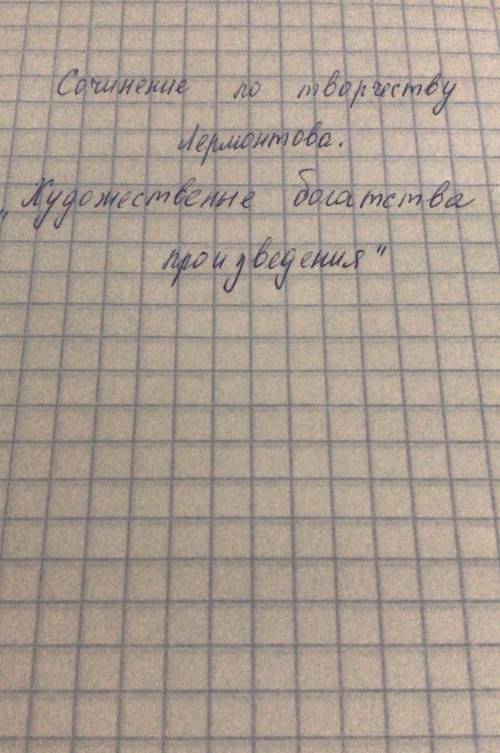 Сочинение по творчеству
Лермонтова.
„Художественые богатства
произведения"